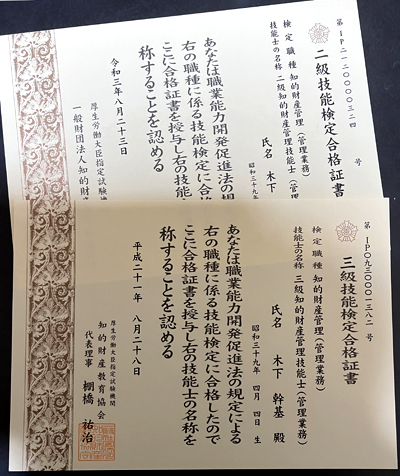 二級技能検定合格証書
検定職種 知的財産管理(管理業務)
技能士の名称 二級知的財産管理技能士(管理
氏名 木下
昭和三十九年
あなたは職業能力開発促進法の規
右の職種に係る技能検定に合格
ここに合格証書を授与し右の技能
称することを認める
令和三年八月二十三日
厚生労働大臣指定試験機
一般財団法人知的財
三級技能検定合格証書
検定職種 知的財産管理(管理業務)
技能士の名称 三級知的財産管理技能士(管理業務)
氏名 木下 幹基 殿
昭和三十九年 四月 四日 生
あなたは職業能力開発促進法の規定による
右の職種に係る技能検定に合格したので
ここに合格証書を授与し右の技能士の名称を
称することを認める
平成二十一年 八月二十八日
厚生労働大臣指定試験機関
知的財産教育協会
代表理事 棚橋 祐治